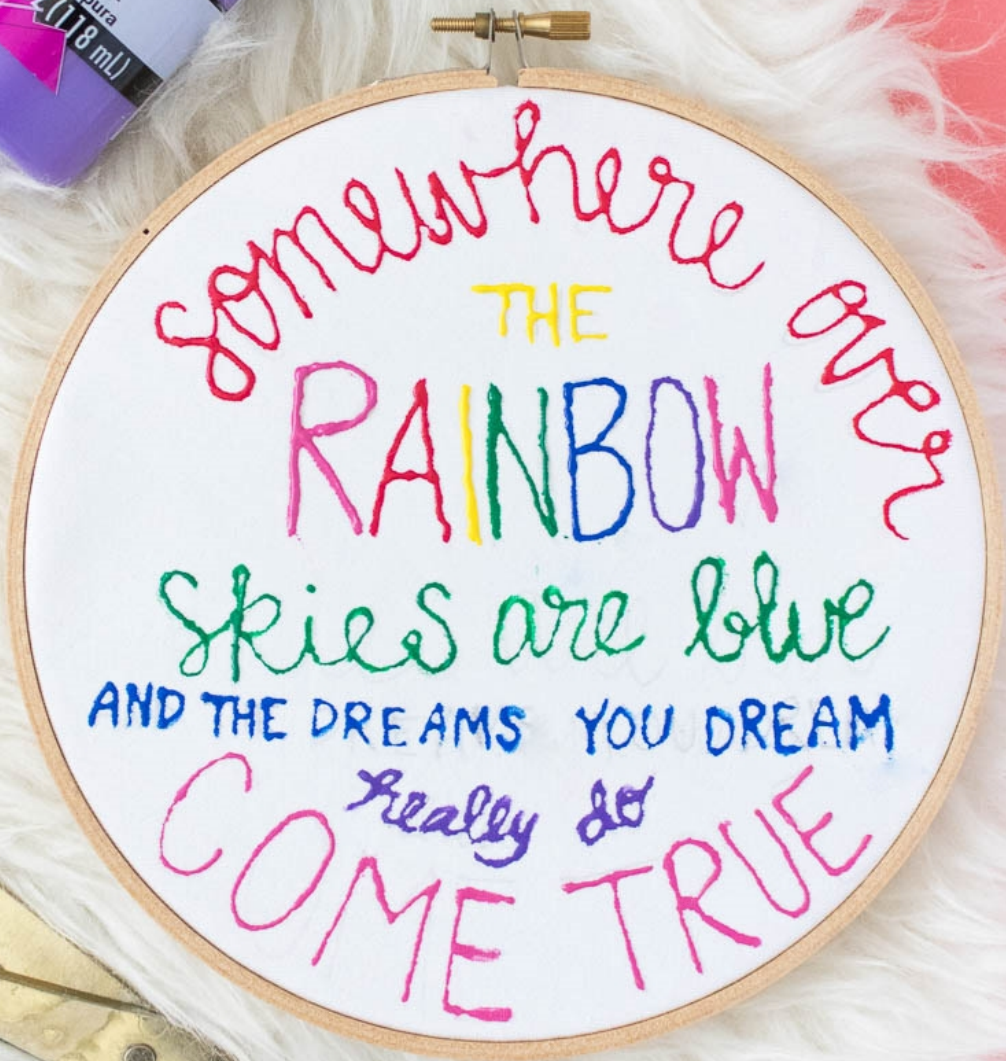 pura
(118 mL)
somewhere over
THE
RAINBOW
skies are blue
AND THE DREAMS YOU DREAM
really do
COME TRUE